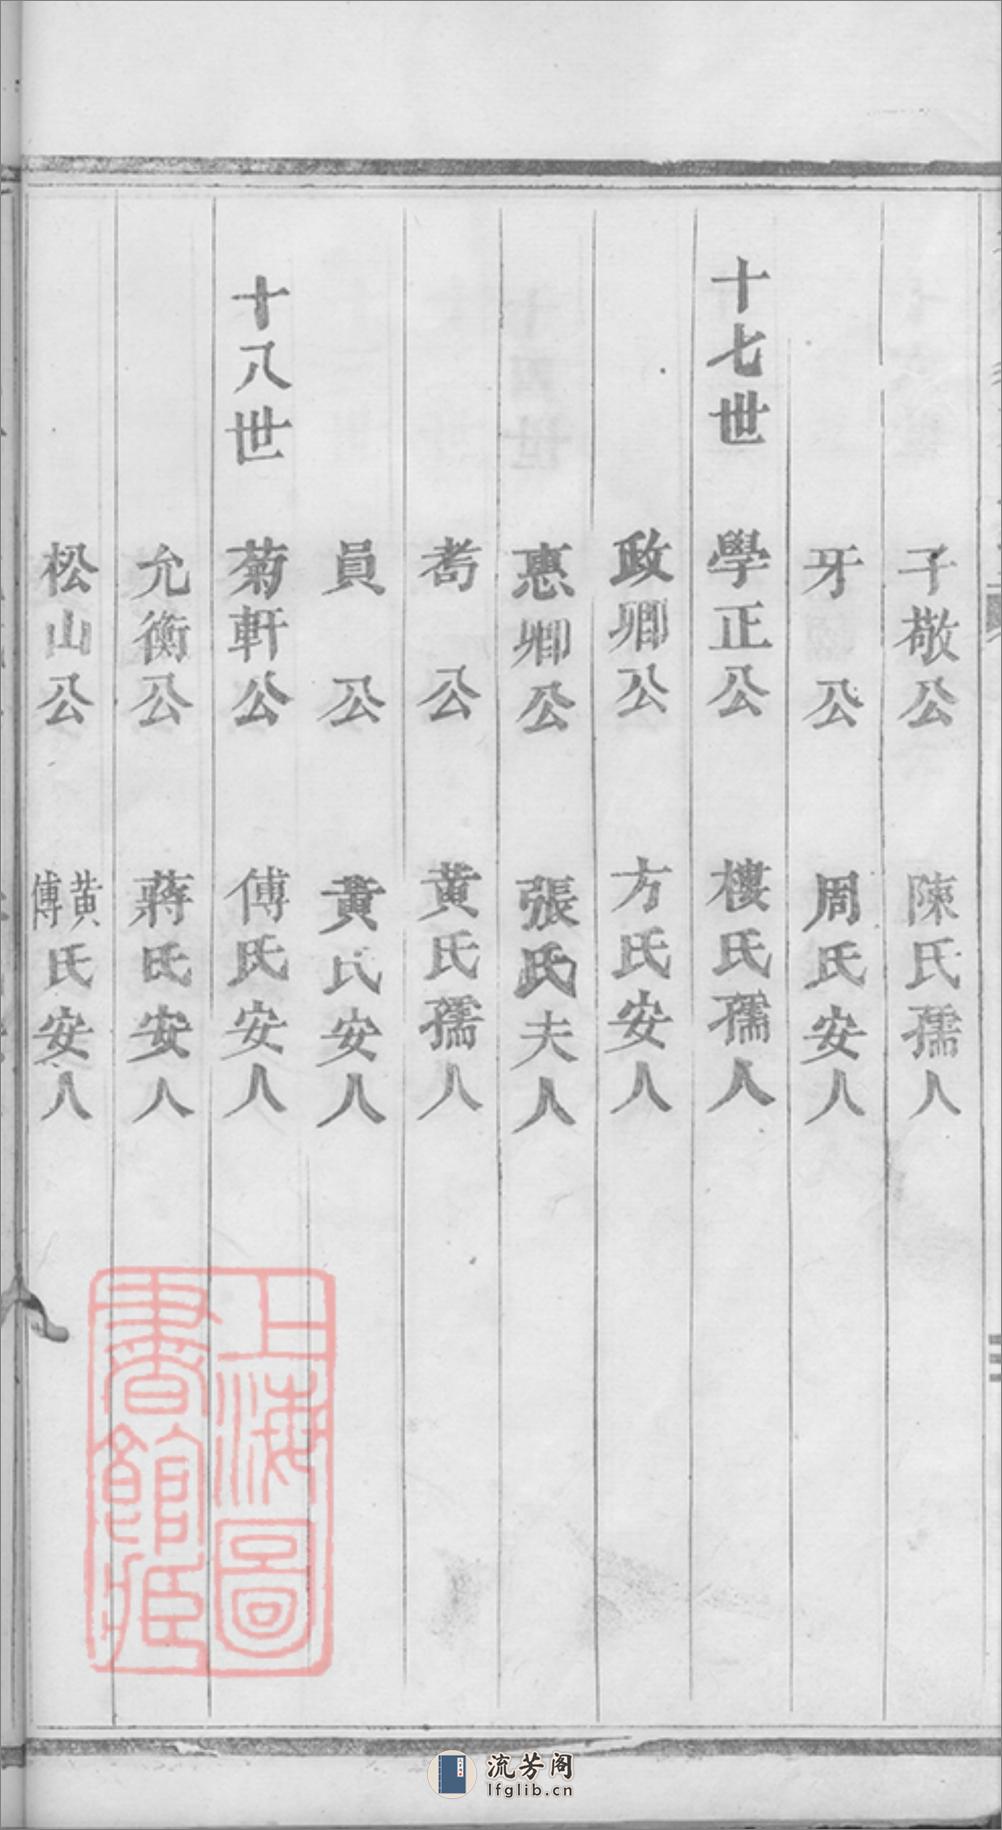 子敬公 陳氏孺人
牙公 周氏安人
十七世 學正公 樓氏孺人
政卿公 方氏安人
惠卿公 張氏夫人
耇公 黃氏孺人
員公 黃氏安人
十八世 菊軒公 傅氏安人
允衡公 蔣氏安人
松山公 黃傅氏安人
上海圖
書館藏
流芳阁
lfglib.cn